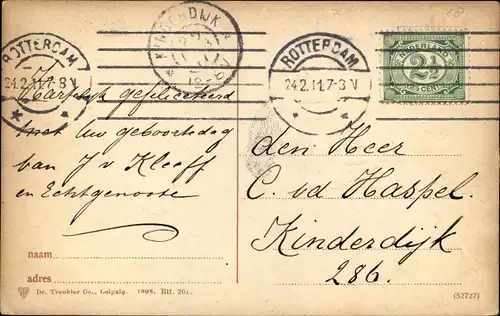 ROTTERDAM
24.2.11.7-3 V
KINDERDIJK
ROTTERDAM
24.2.11.7-3 V
NEDERLAND
2½
CENT
Hartelijk gefeliciteerd
met Uw geboortedag
van J v Kleeff
en Echtgenoote
den Heer
C. vd Haspel.
Kinderdijk
286.
naam
adres
Dr. Trenkler Co., Leipzig. 1908. Rtt. 201.
(52727)